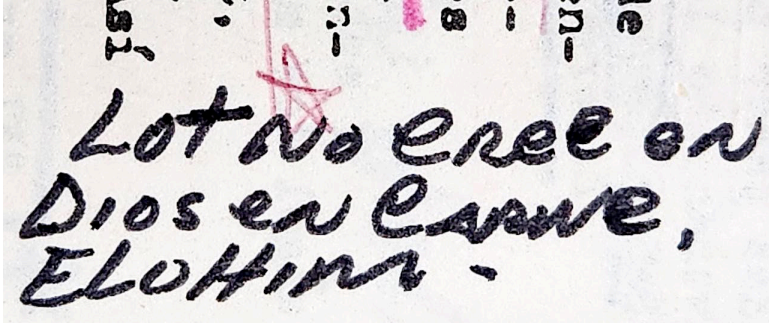 Lot No cree en
Dios en carne,
ELOHIM-